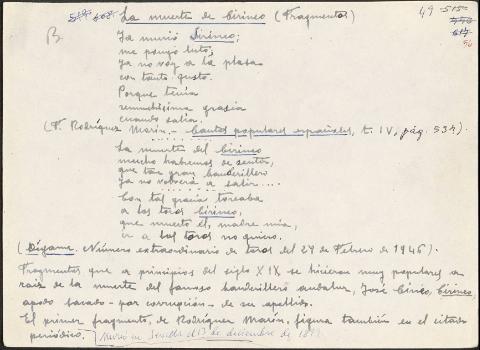 La muerte de Cirineo (Fragmentos) 49 515
B.
Ya murió Sirineo;
me pongo luto;
ya no voy a la plasa
con tanto gusto.
Porque tenía
remuchísima grasia
cuando salía.
(F. Rodríguez Marín.- Cantos populares españoles, t. IV, pág. 534).
La muerte del Cirineo
mucho habremos de sentir,
que tan gran banderillero
ya no volverá a salir....
Con tal gracia toreaba
a los toros Cirineo,
que muerto él, madre mía,
ir a los toros no quiero.
(Dígame. Número extraordinario de toros del 29 de Febrero de 1946).
Fragmentos que a principios del siglo XIX se hicieron muy populares a
raíz de la muerte del famoso banderillero andaluz, José Cirico, Cirineo,
apodo sacado - por corrupción - de su apellido.
El primer fragmento, de Rodríguez Marín, figura también en el citado
periódico. Murió en Sevilla el 13 de diciembre de